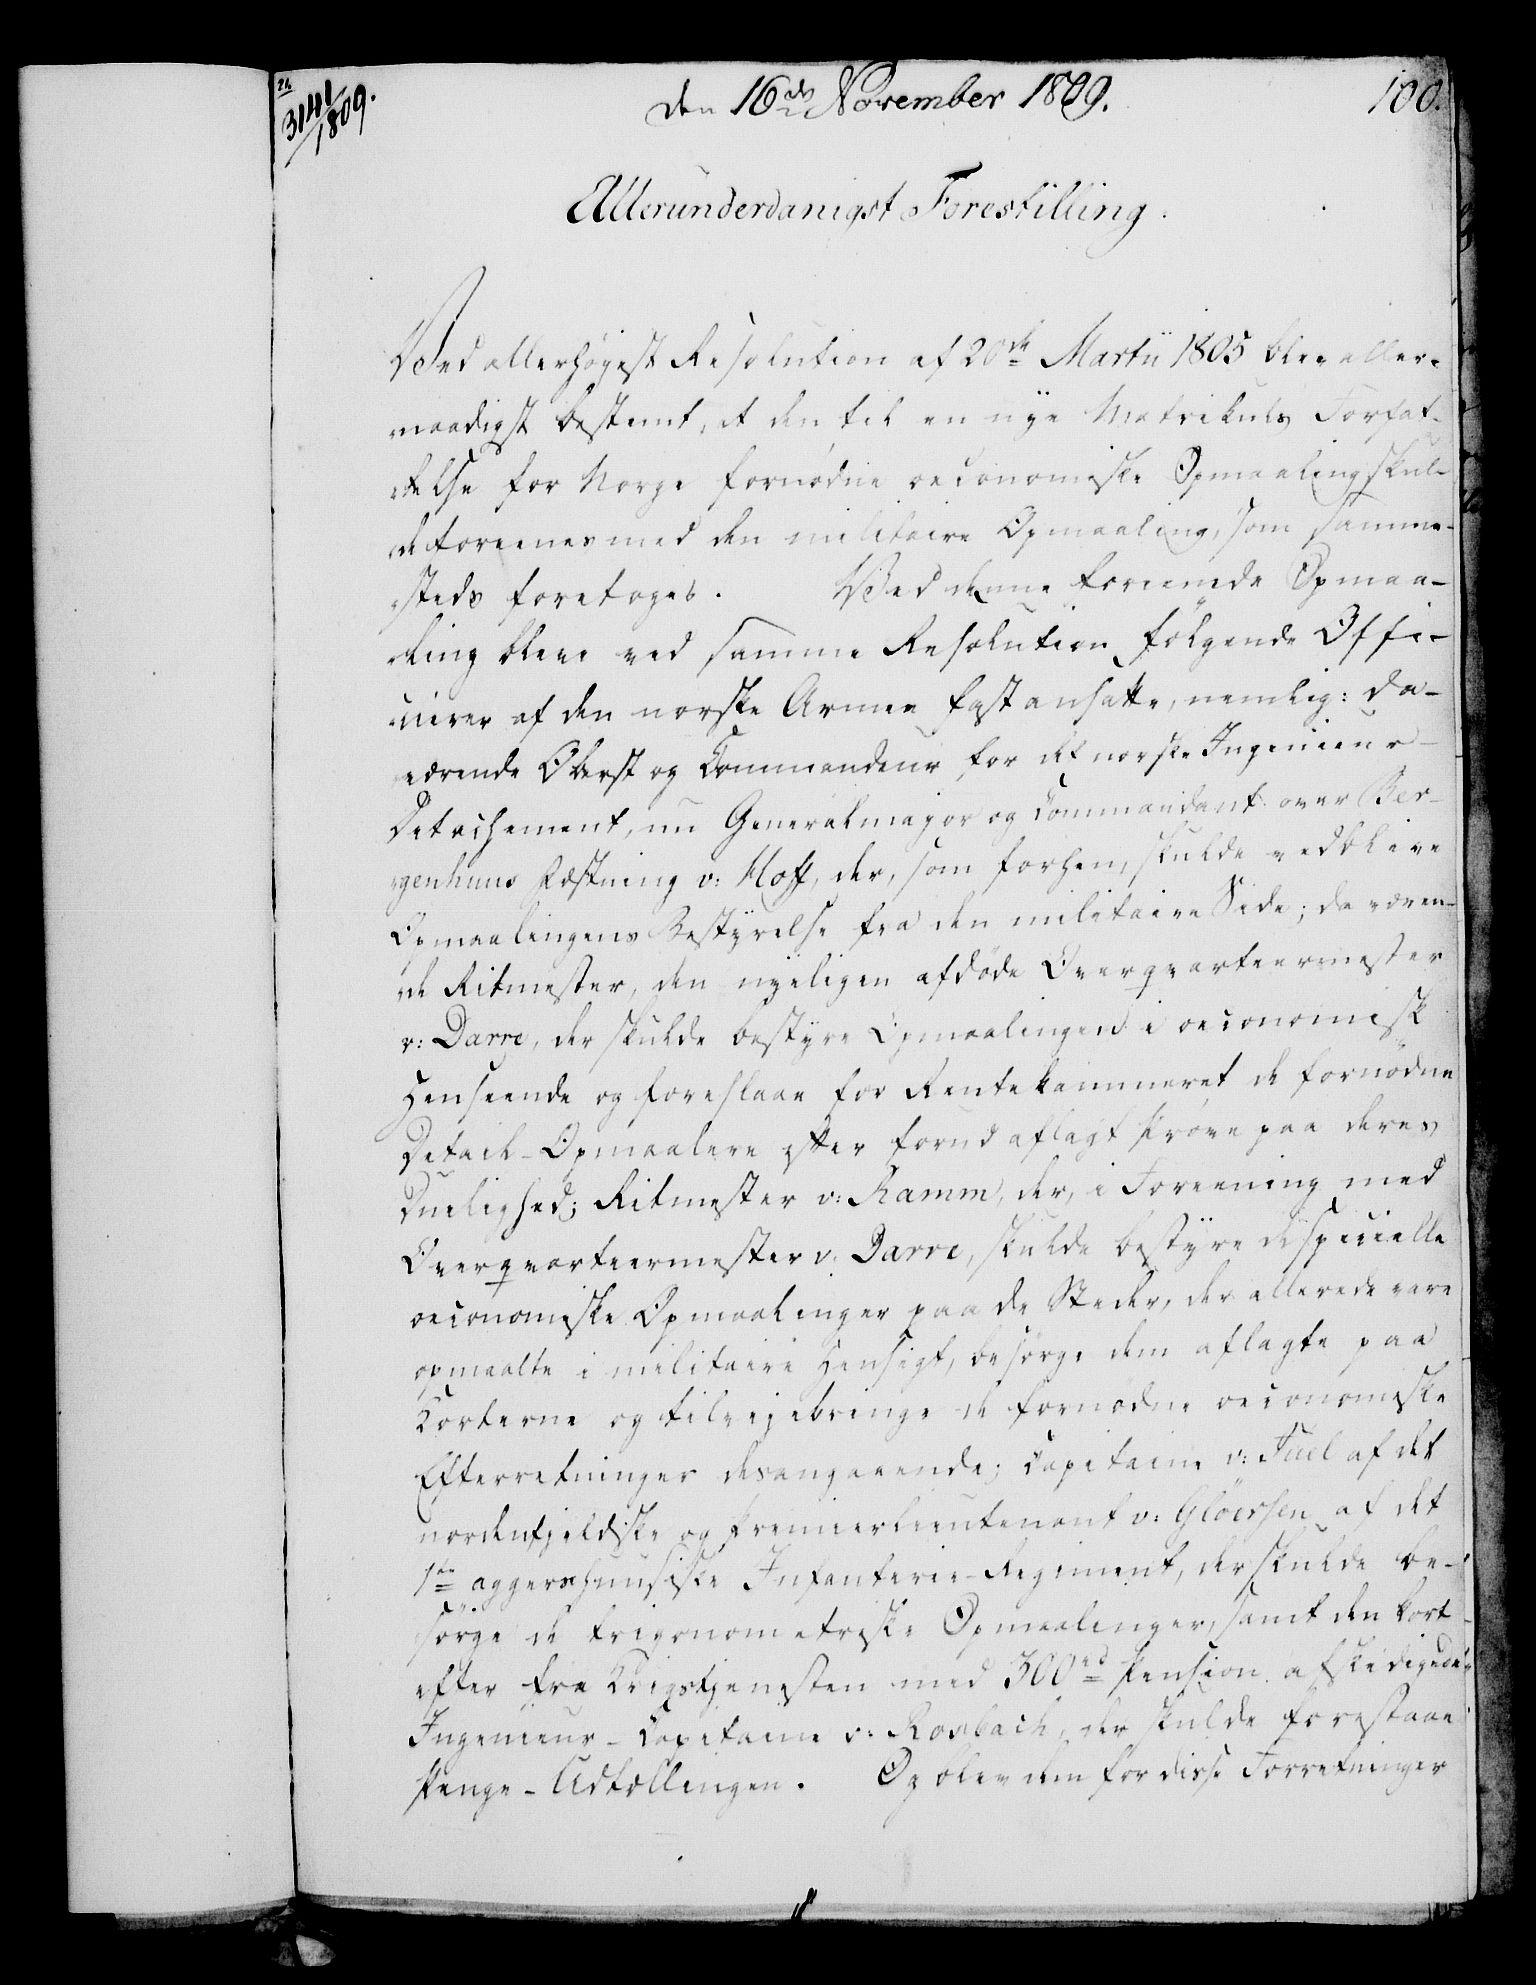 3141/1809.
den 16de November 1809.
100.
Allerunderdanigst Forestilling.
Ved allerhøyest Resolution af 20de Martii 1805 blev aller-
naadigst bestemt, at den til en nye Matrikuls Forfat-
telse for Norge fornødne oeconomiske Opmaaling skul-
de foreenes med den militaire Opmaaling, som samme-
steds foretoges. Ved denne foreenede Opmaa-
ling bleve ved samme Resolution følgende Offi-
cierer af den norske Armee fastansatte, nemlig: da-
værende Oberst og Commandeur for det norske Ingenieur-
Detachement, nu Generalmajor og Commandant over Ber-
genhuus Fæstning v: Hoff, der, som forhen, skulde vedblive
Opmaalingens Bestyrelse fra den militaire Side; da væren-
de Ritmester, den nyeligen afdøde Overqvarteermester
v: Darre, der skulde bestyre Opmaalingen i oeconomisk
Henseende og foreslaae for Rentekammeret de fornødne
Detail-Opmaalere efter forud aflagt Prøve paa deres
Duelighed; Ritmester v: Ramm, der, i Foreening med
Overqvarteermester v: Darre, skulde bestyre de specielle
oeconomiske Opmaalinger paa de Steder, der allerede vare
opmaalte i militaire Hensigt, besørge dem aflagte paa
Korterne og tilvejebringe de fornødne oeconomiske
Efterretninger desangaaende; Capitaine v: Juel af det
nordenfjeldske og Premierlieutenant v: Glöersen af det
1ste aggershuusiske Infanterie-Regiment, der skulde be-
sørge de trigonometriske Opmaalinger, samt den kort
efter fra Krigstjenesten med 300rd Pension afskedigede
Ingenieur-Capitaine v: Rosbach, der skulde forestaae
Penge-Udtællingen. Og blev dem for disse Forretninger